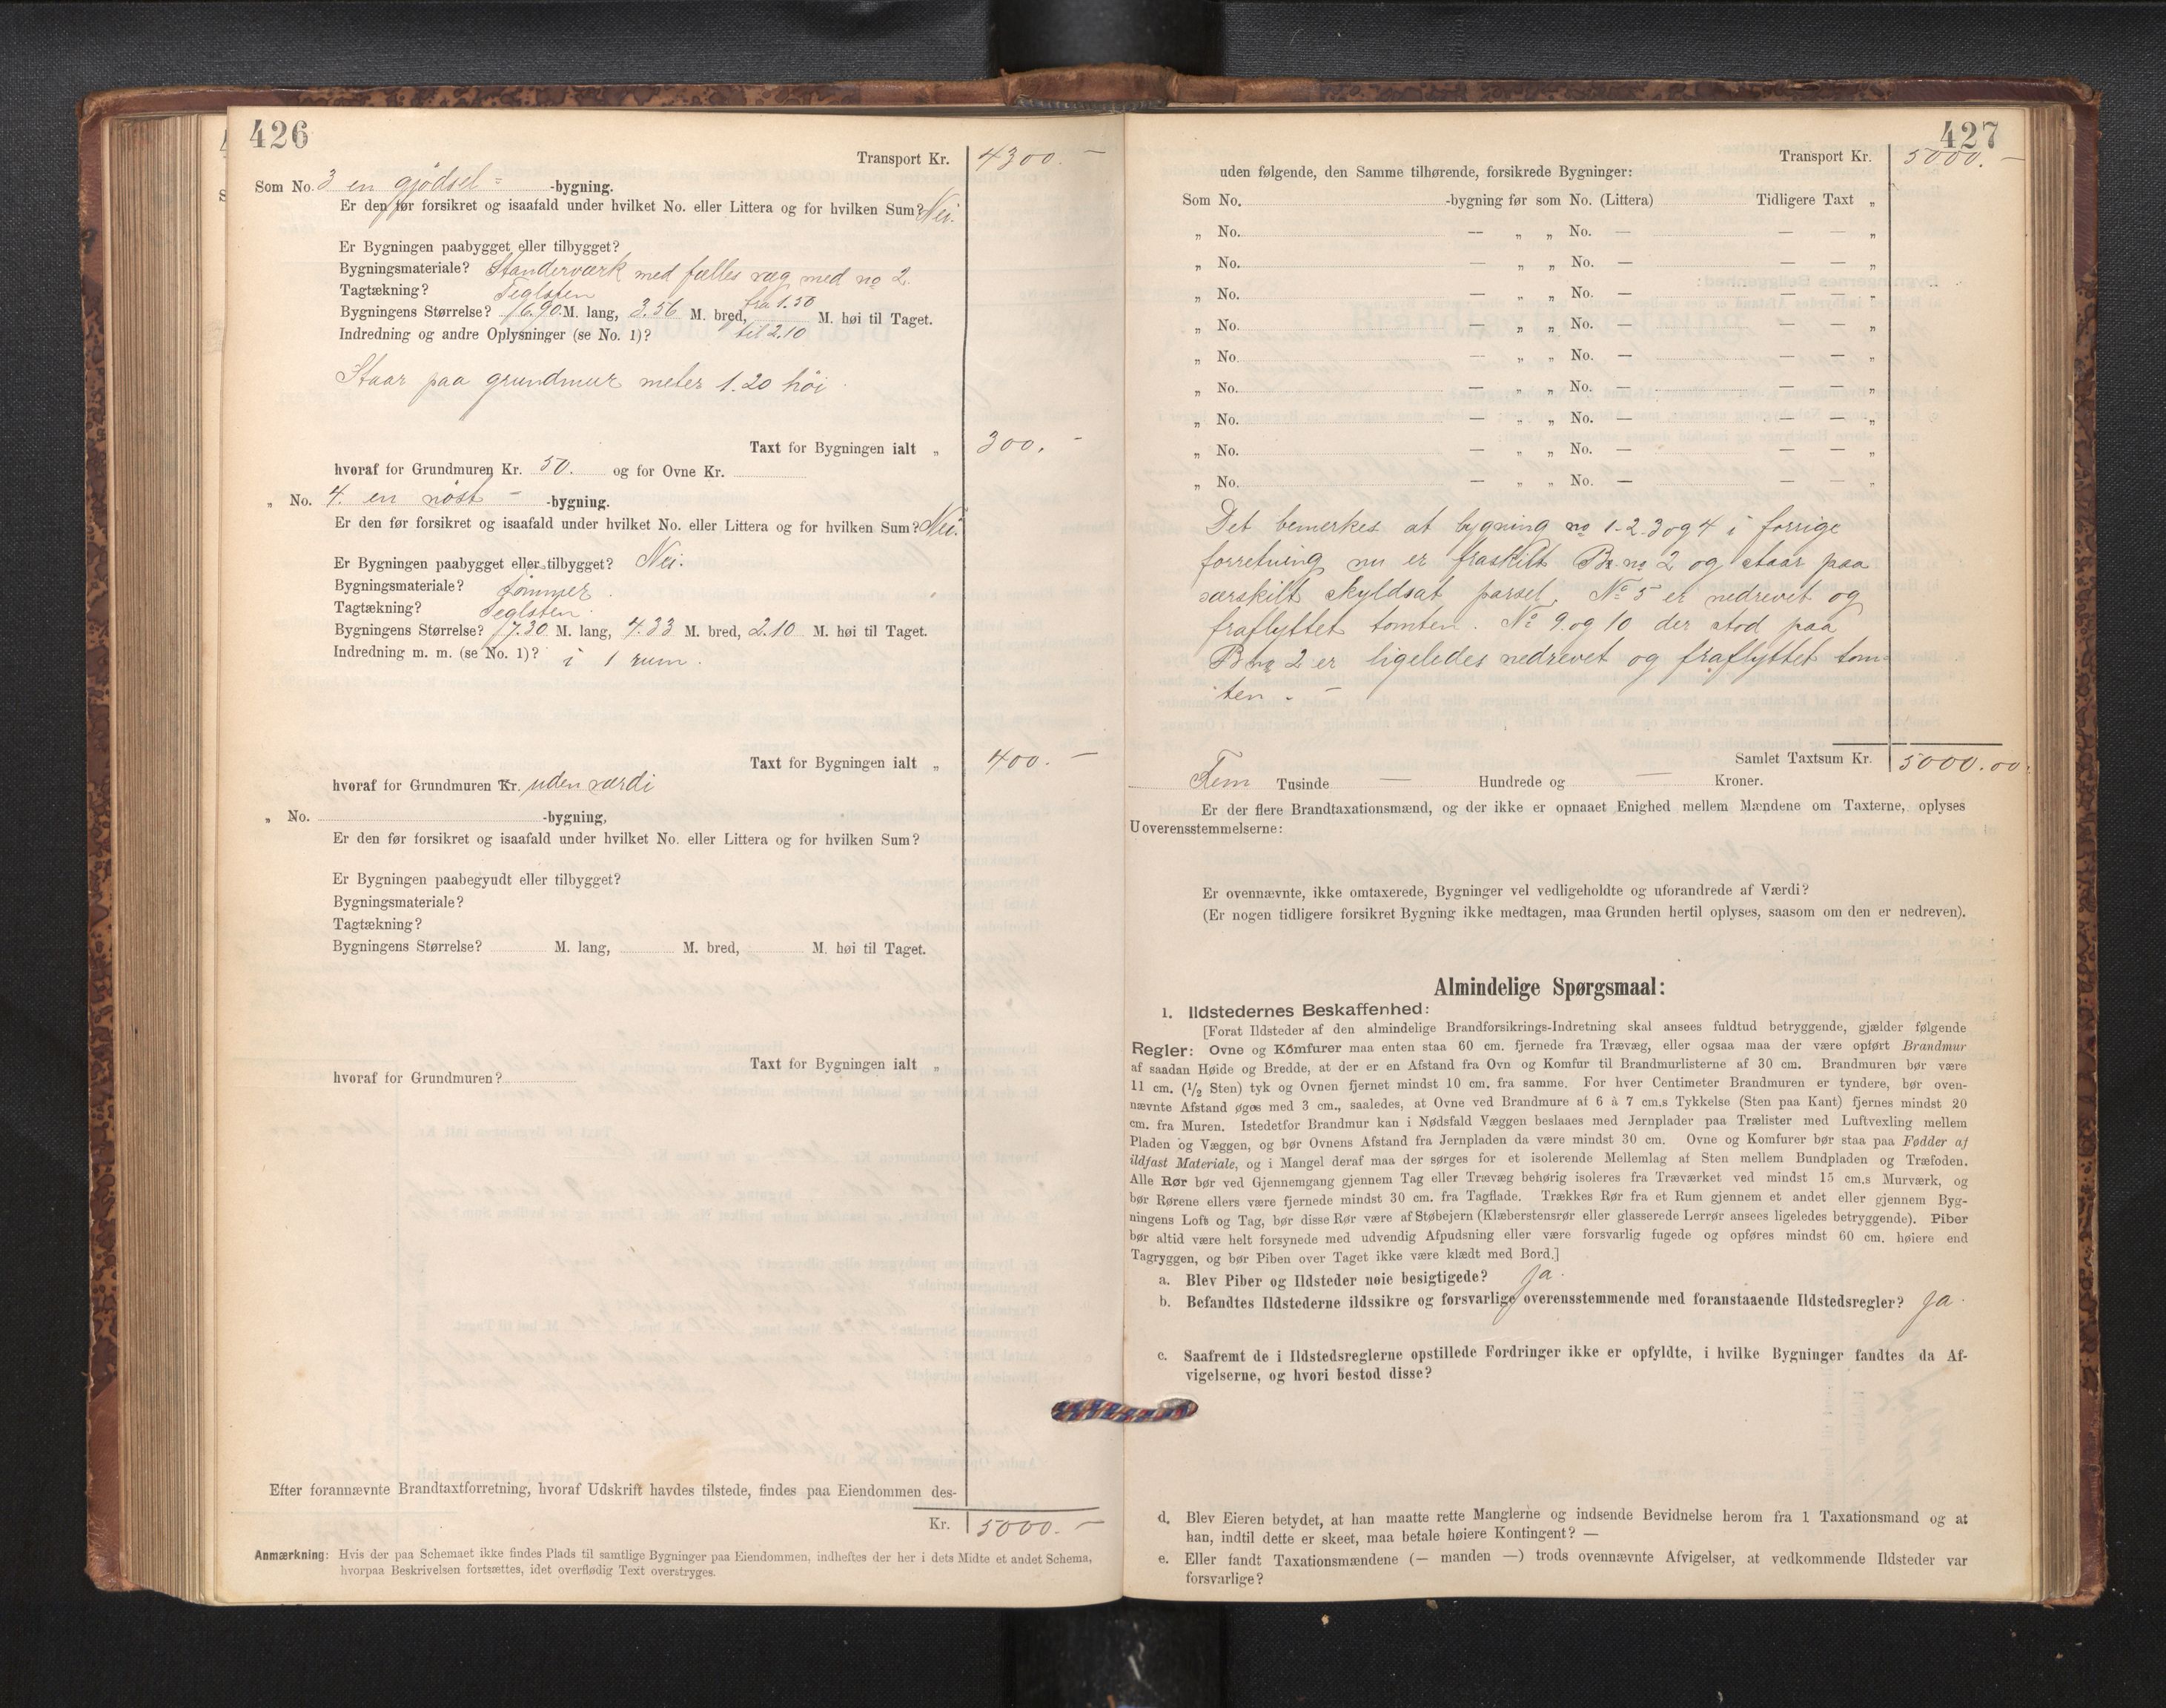 426
Transport Kr. 4300. —
Som No. 3 en gjödsel= -bygning.
Er den før forsikret og isaafald under hvilket No. eller Littera og for hvilken Sum? Nei.
Er Bygningen paabygget eller tilbygget?
Bygningsmateriale? Standerværk med fælles væg med no 2.
Tagtækning? Teglsten
Bygningens Størrelse? 6.90. M. lang, 3.56 M. bred, fra 1.50 M. høi til Taget.
Indredning og andre Oplysninger (se No. 1)? til 2.10
Staar paa grundmur meter 1.20 höi
Taxt for Bygningen ialt „ 300. -
hvoraf for Grundmuren Kr. 50. og for Ovne Kr.
„ No. 4. en nöst - -bygning.
Er den før forsikret og isaafald under hvilket No. eller Littera og for hvilken Sum? Nei.
Er Bygningen paabygget eller tilbygget? Nei.
Bygningsmateriale? tömmer.
Tagtækning? Teglsten.
Bygningens Størrelse? 7.30 M. lang, 4.33 M. bred, 2.10 M. høi til Taget.
Indredning m. m. (se No. 1)? i 1 rum.
Taxt for Bygningen ialt „ 400. —
hvoraf for Grundmuren Kr. uden værdi
„ No. -bygning,
Er den før forsikret og isaafald under hvilket No. eller Littera og for hvilken Sum?
Er Bygningen paabegyudt eller tilbygget?
Bygningsmateriale?
Tagtækning?
Bygningens Størrelse? M. lang, M. bred, M. høi til Taget.
Taxt for Bygningen ialt „
hvoraf for Grundmuren?
Efter forannævnte Brandtaxtforretning, hvoraf Udskrift havdes tilstede, findes paa Eiendommen des-
Kr. 5000. —
Anmærkning: Hvis der paa Schemaet ikke findes Plads til samtlige Bygninger paa Eiendommen, indheftes der her i dets Midte et andet Schema,
hvorpaa Beskrivelsen fortsættes, idet overflødig Text overstryges.
427
Transport Kr. 5000. —
uden følgende, den Samme tilhørende, forsikrede Bygninger:
Som No. -bygning før som No. (Littera) Tidligere Taxt „
„ No. — „ „ No. — — — „
„ No. — „ „ No. — — — „
„ No. — „ „ No. — — — „
„ No. — „ „ No. — — — „
„ No. — „ „ No. — — — „
„ No. — „ „ No. — — — „
„ No. — „ „ No. — — — „
„ No. — „ „ No. — — — „
„ No. — „ „ No. — — — „
Det bemerkes at bygning no 1-2.3og4 i forrige
forretning nu er fraskilt Br.no 2 og staar paa
særskilt skyldsat parsel. No 5 er nedrevet og
fraflyttet tomten. No 9.og 10 der stod paa
B no 2 er ligeledes nedrevet og fraflyttet tom=
ten. -
Samlet Taxtsum Kr. 5000.00.
Fem Tusinde — Hundrede og — Kroner.
Er der flere Brandtaxationsmænd, og der ikke er opnaaet Enighed mellem Mændene om Taxterne, oplyses
Uoverensstemmelserne:
Er ovennævnte, ikke omtaxerede, Bygninger vel vedligeholdte og uforandrede af Værdi?
(Er nogen tidligere forsikret Bygning ikke medtagen, maa Grunden hertil oplyses, saasom om den er nedreven).
Almindelige Spørgsmaal:
1. Ildstedernes Beskaffenhed:
[Forat Ildsteder af den almindelige Brandforsikrings-Indretning skal ansees fuldtud betryggende, gjælder følgende
Regler: Ovne og Komfurer maa enten staa 60 cm. fjernede fra Trævæg, eller ogsaa maa der være opført Brandmur
af saadan Høide og Bredde, at der er en Afstand fra Ovn og Komfur til Brandmurlisterne af 30 cm. Brandmuren bør være
11 cm. (1/2 Sten) tyk og Ovnen fjernet mindst 10 cm. fra samme. For hver Centimeter Brandmuren er tyndere, bør oven-
nævnte Afstand øges med 3 cm., saaledes, at Ovne ved Brandmure af 6 à 7 cm.s Tykkelse (Sten paa Kant) fjernes mindst 20
cm. fra Muren. Istedetfor Brandmur kan i Nødsfald Væggen beslaaes med Jernplader paa Trælister med Luftvexling mellem
Pladen og Væggen, og bør Ovnens Afstand fra Jernpladen da være mindst 30 cm. Ovne og Komfurer bør staa paa Fødder af
ildfast Materiale, og i Mangel deraf maa der sørges for et isolerende Mellemlag af Sten mellem Bundpladen og Træfoden.
Alle Rør bør ved Gjennemgang gjennem Tag eller Trævæg behørig isoleres fra Træværket ved mindst 15 cm.s Murværk, og
bør Rørene ellers være fjernede mindst 30 cm. fra Tagflade. Trækkes Rør fra et Rum gjennem et andet eller gjennem Byg-
ningens Loft og Tag, bør disse Rør være af Støbejern (Klæberstensrør eller glasserede Lerrør ansees ligeledes betryggende). Piber
bør altid være helt forsynede med udvendig Afpudsning eller være forsvarlig fugede og opføres mindst 60 cm. høiere end
Tagryggen, og bør Piben over Taget ikke være klædt med Bord.]
a. Blev Piber og Ildsteder nøie besigtigede? ja.
b. Befandtes Ildstederne ildssikre og forsvarlige overensstemmende med foranstaaende Ildstedsregler? ja.
c. Saafremt de i Ildstedsreglerne opstillede Fordringer ikke er opfyldte, i hvilke Bygninger fandtes da Af-
vigelserne, og hvori bestod disse?
d. Blev Eieren betydet, at han maatte rette Manglerne og indsende Bevidnelse herom fra 1 Taxationsmand og at
han, indtil dette er skeet, maa betale høiere Kontingent? —
e. Eller fandt Taxationsmændene (— manden —) trods ovennævnte Afvigelser, at vedkommende Ildsteder var
forsvarlige?